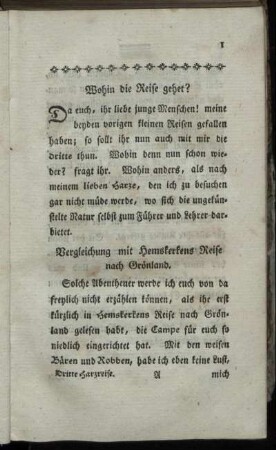 1
Wohin die Reise gehet?
Da euch, ihr liebe junge Menschen! meine
beyden vorigen kleinen Reisen gefallen
haben; so sollt ihr nun auch mit mir die
dritte thun. Wohin denn nun schon wie-
der? fragt ihr. Wohin anders, als nach
meinem lieben Harze, den ich zu besuchen
gar nicht müde werde, wo sich die ungekün-
stelte Natur selbst zum Führer und Lehrer dar-
bietet.
Vergleichung mit Hemskerkens Reise
nach Grönland.
Solche Abentheuer werde ich euch von da
freylich nicht erzählen können, als ihr erst
kürzlich in Hemskerkens Reise nach Grön-
land gelesen habt, die Campe für euch so
niedlich eingerichtet hat. Mit den weisen
Bären und Robben, habe ich eben keine Lust,
Dritte Harzreise. A mich